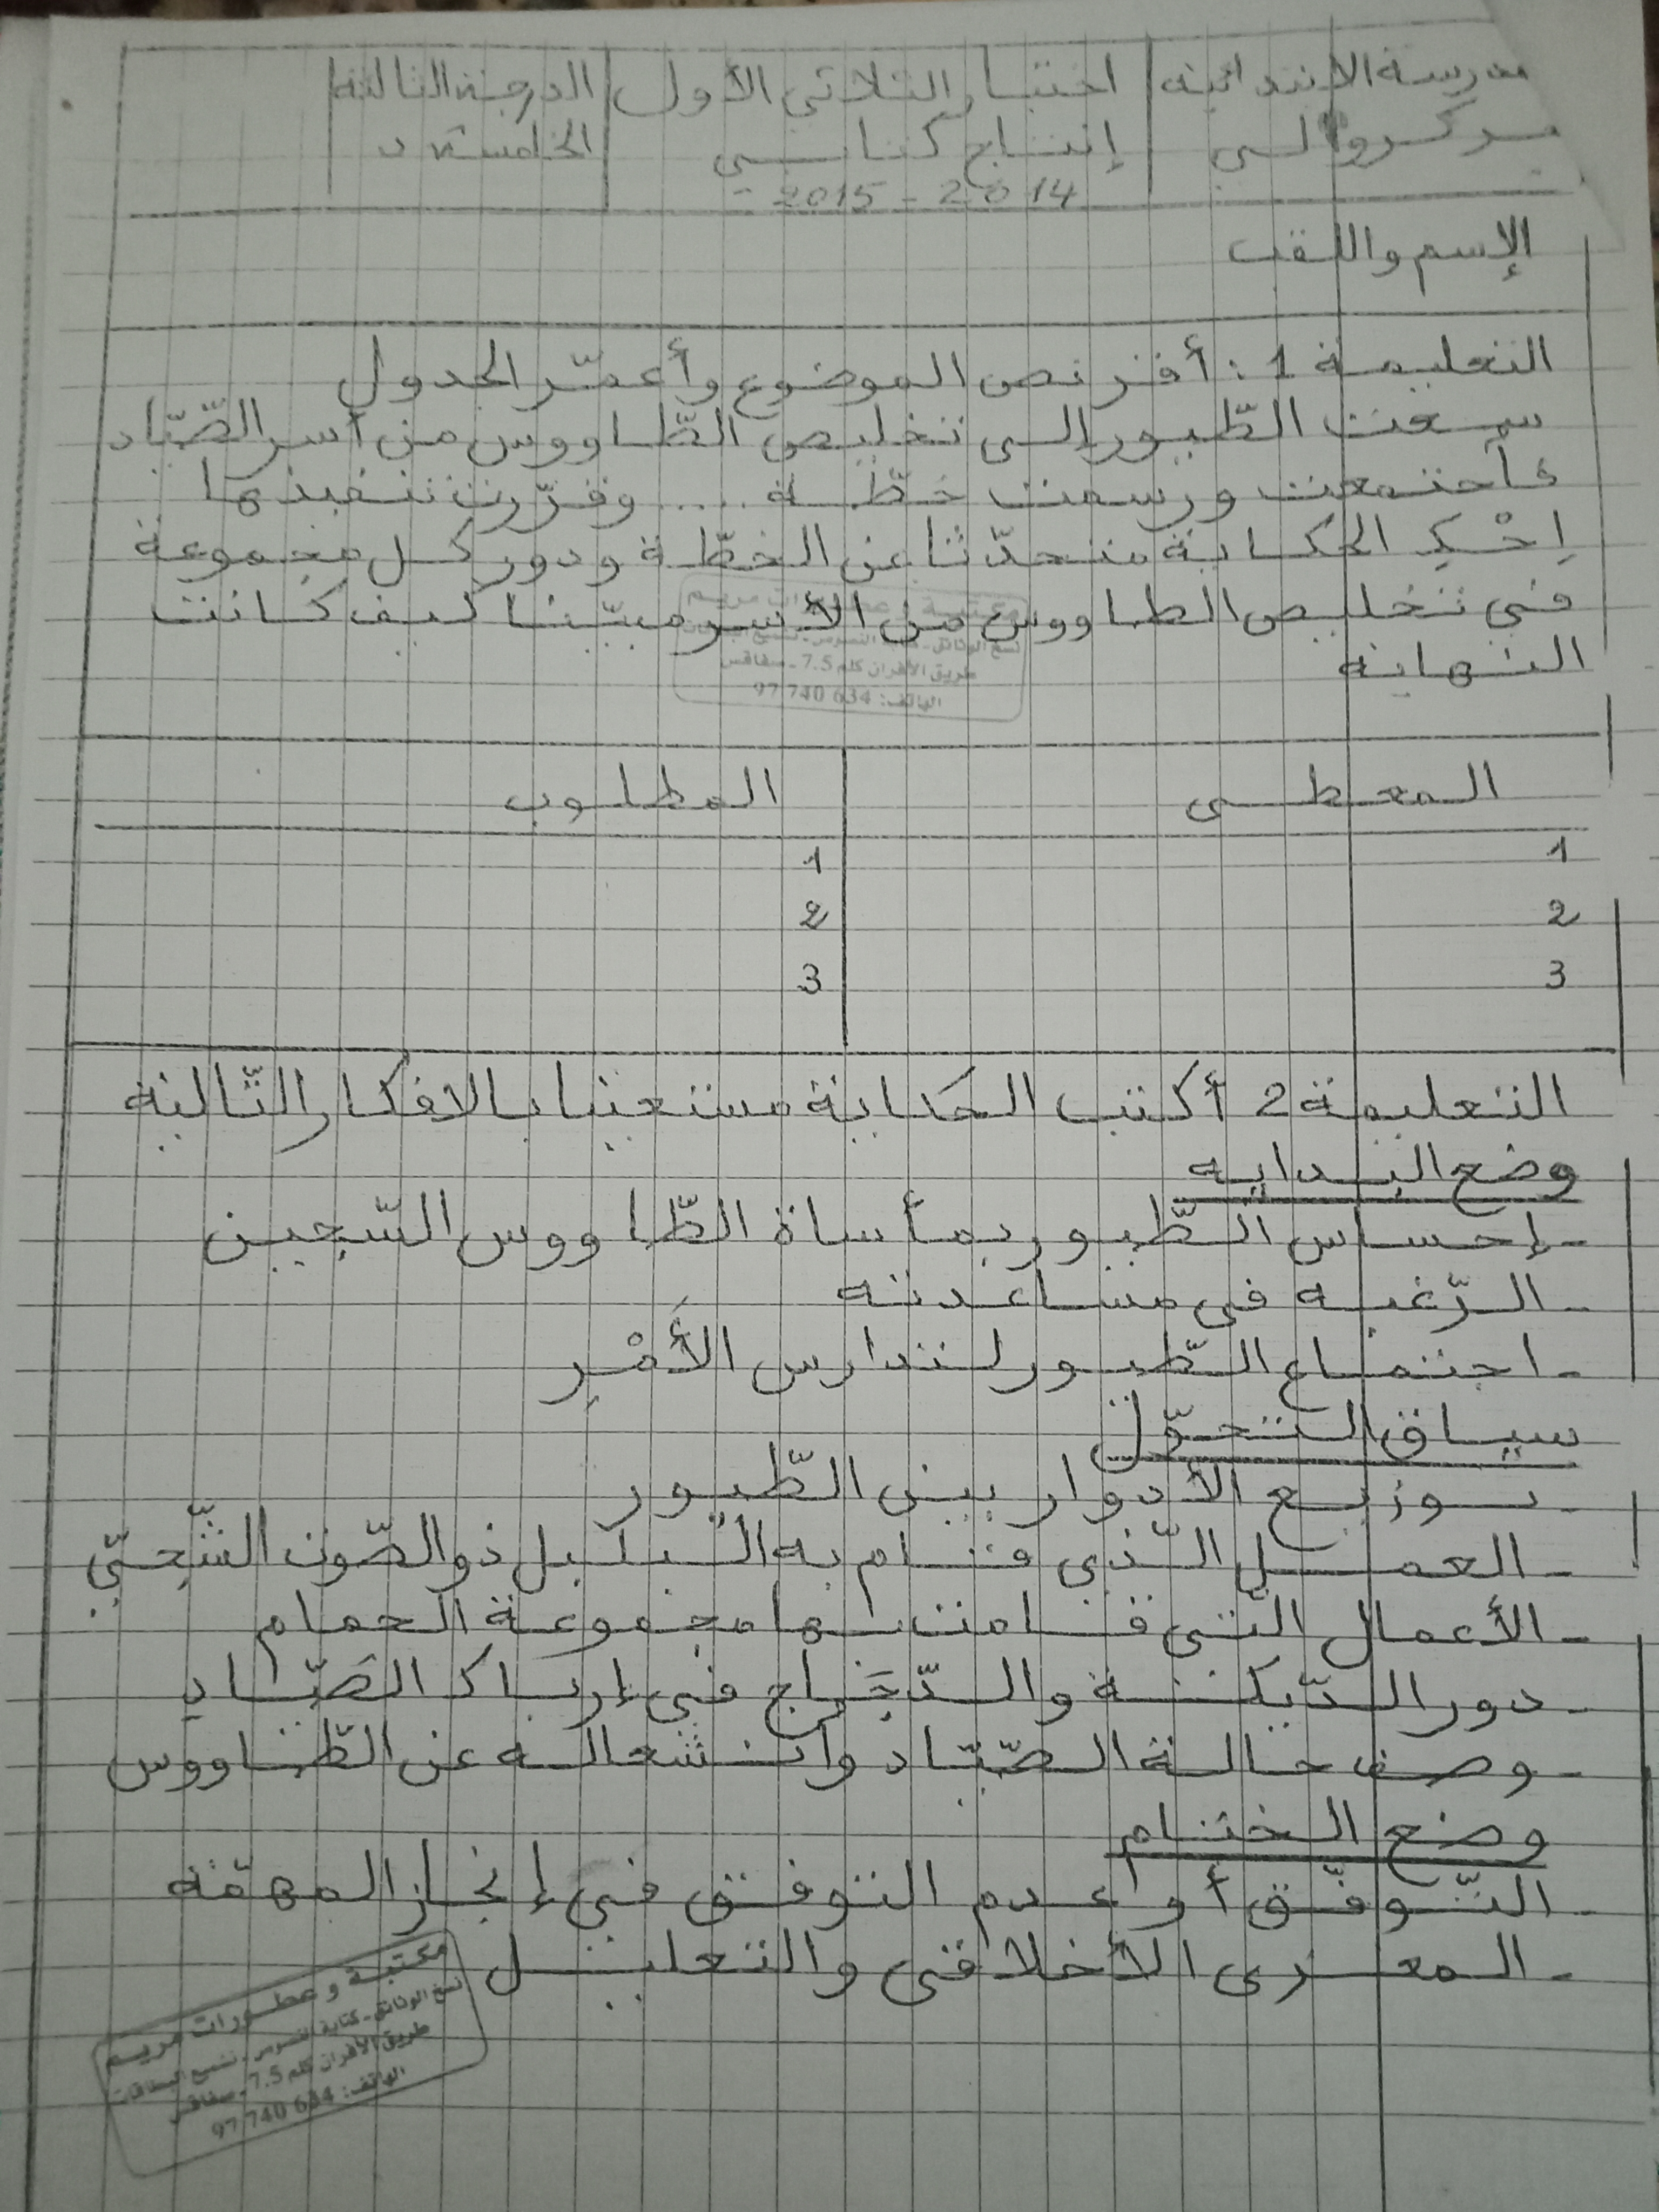 مدرسة الابتدائية | اختبار الثلاثي الأول | الدرجة الثالثة
إنتاج كتابي | الخامسة
2014 - 2015
الإسم واللقب
التعليمة 1: أقر نص الموضوع وأعمّر الجدول
سعت الطّيور إلى تخليص الطّاووس من أسر الصّيّاد
فاجتمعت ورسمت خطّة .... وقرّرت تنفيذها
اِحْكِ الحكاية متحدّثا عن الخطّة ودور كل مجموعة
في تخليص الطاووس من الأسر مبيّنا كيف كانت
النهاية
المعطى | المطلوب
1 | 1
2 | 2
3 | 3
التعليمة 2 أكتب الحكاية مستعينا بالافكار التّالية
وضع البداية
- إحساس الطّيور بمأساة الطّاووس السّجين
- الرّغبة في مساعدته
- اجتماع الطّيور لتدارس الأَمْرِ
سياق التحوّل
- توزيع الأدوار بين الطّيور
- العمل الّذي قام به البلبل ذو الصّوت الشّجيّ
- الأعمال الّتي قامت بها مجموعة الحمام
- دور الدّيكة والدّجاج في إرباك الصّيّاد
- وصف حالة الصّيّاد وانشغاله عن الطّاووس
وضع الختام
- التّوفّق أو عدم التوفق في إنجاز المهمّة
- المغزى الأخلاقي والتعليل
مكتبة وعطورات مريم
نسخ الوثائق - كتابة النصوص -
طريق الأفران كلم 7.5 - صفاقس
الهاتف: 97 740 634